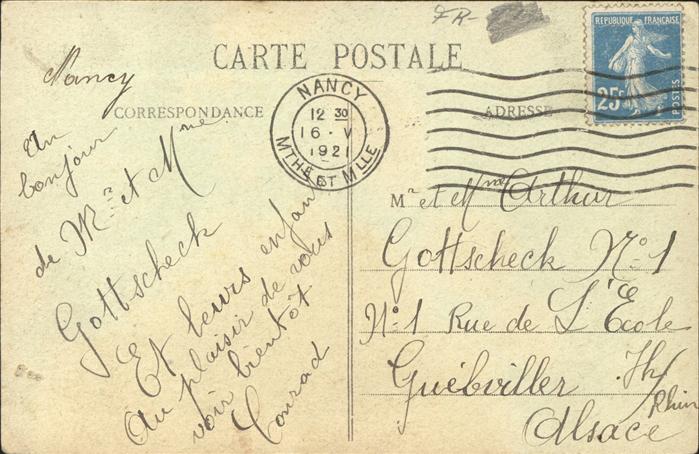 FR-
CARTE POSTALE
REPUBLIQUE FRANÇAISE
25c
POSTES
NANCY
12 30
16 · V
1921
MTHE ET MLLE
CORRESPONDANCE
ADRESSE
Nancy
un
bonjour
de Mr et Mme
Gottscheck
Et leurs enfan
au plaisir de vous
voir bientôt
Conrad
Mr et Mme Arthur
Gottscheck No 1
No 1 Rue de L'École
Guébviller
Rhin
Alsace